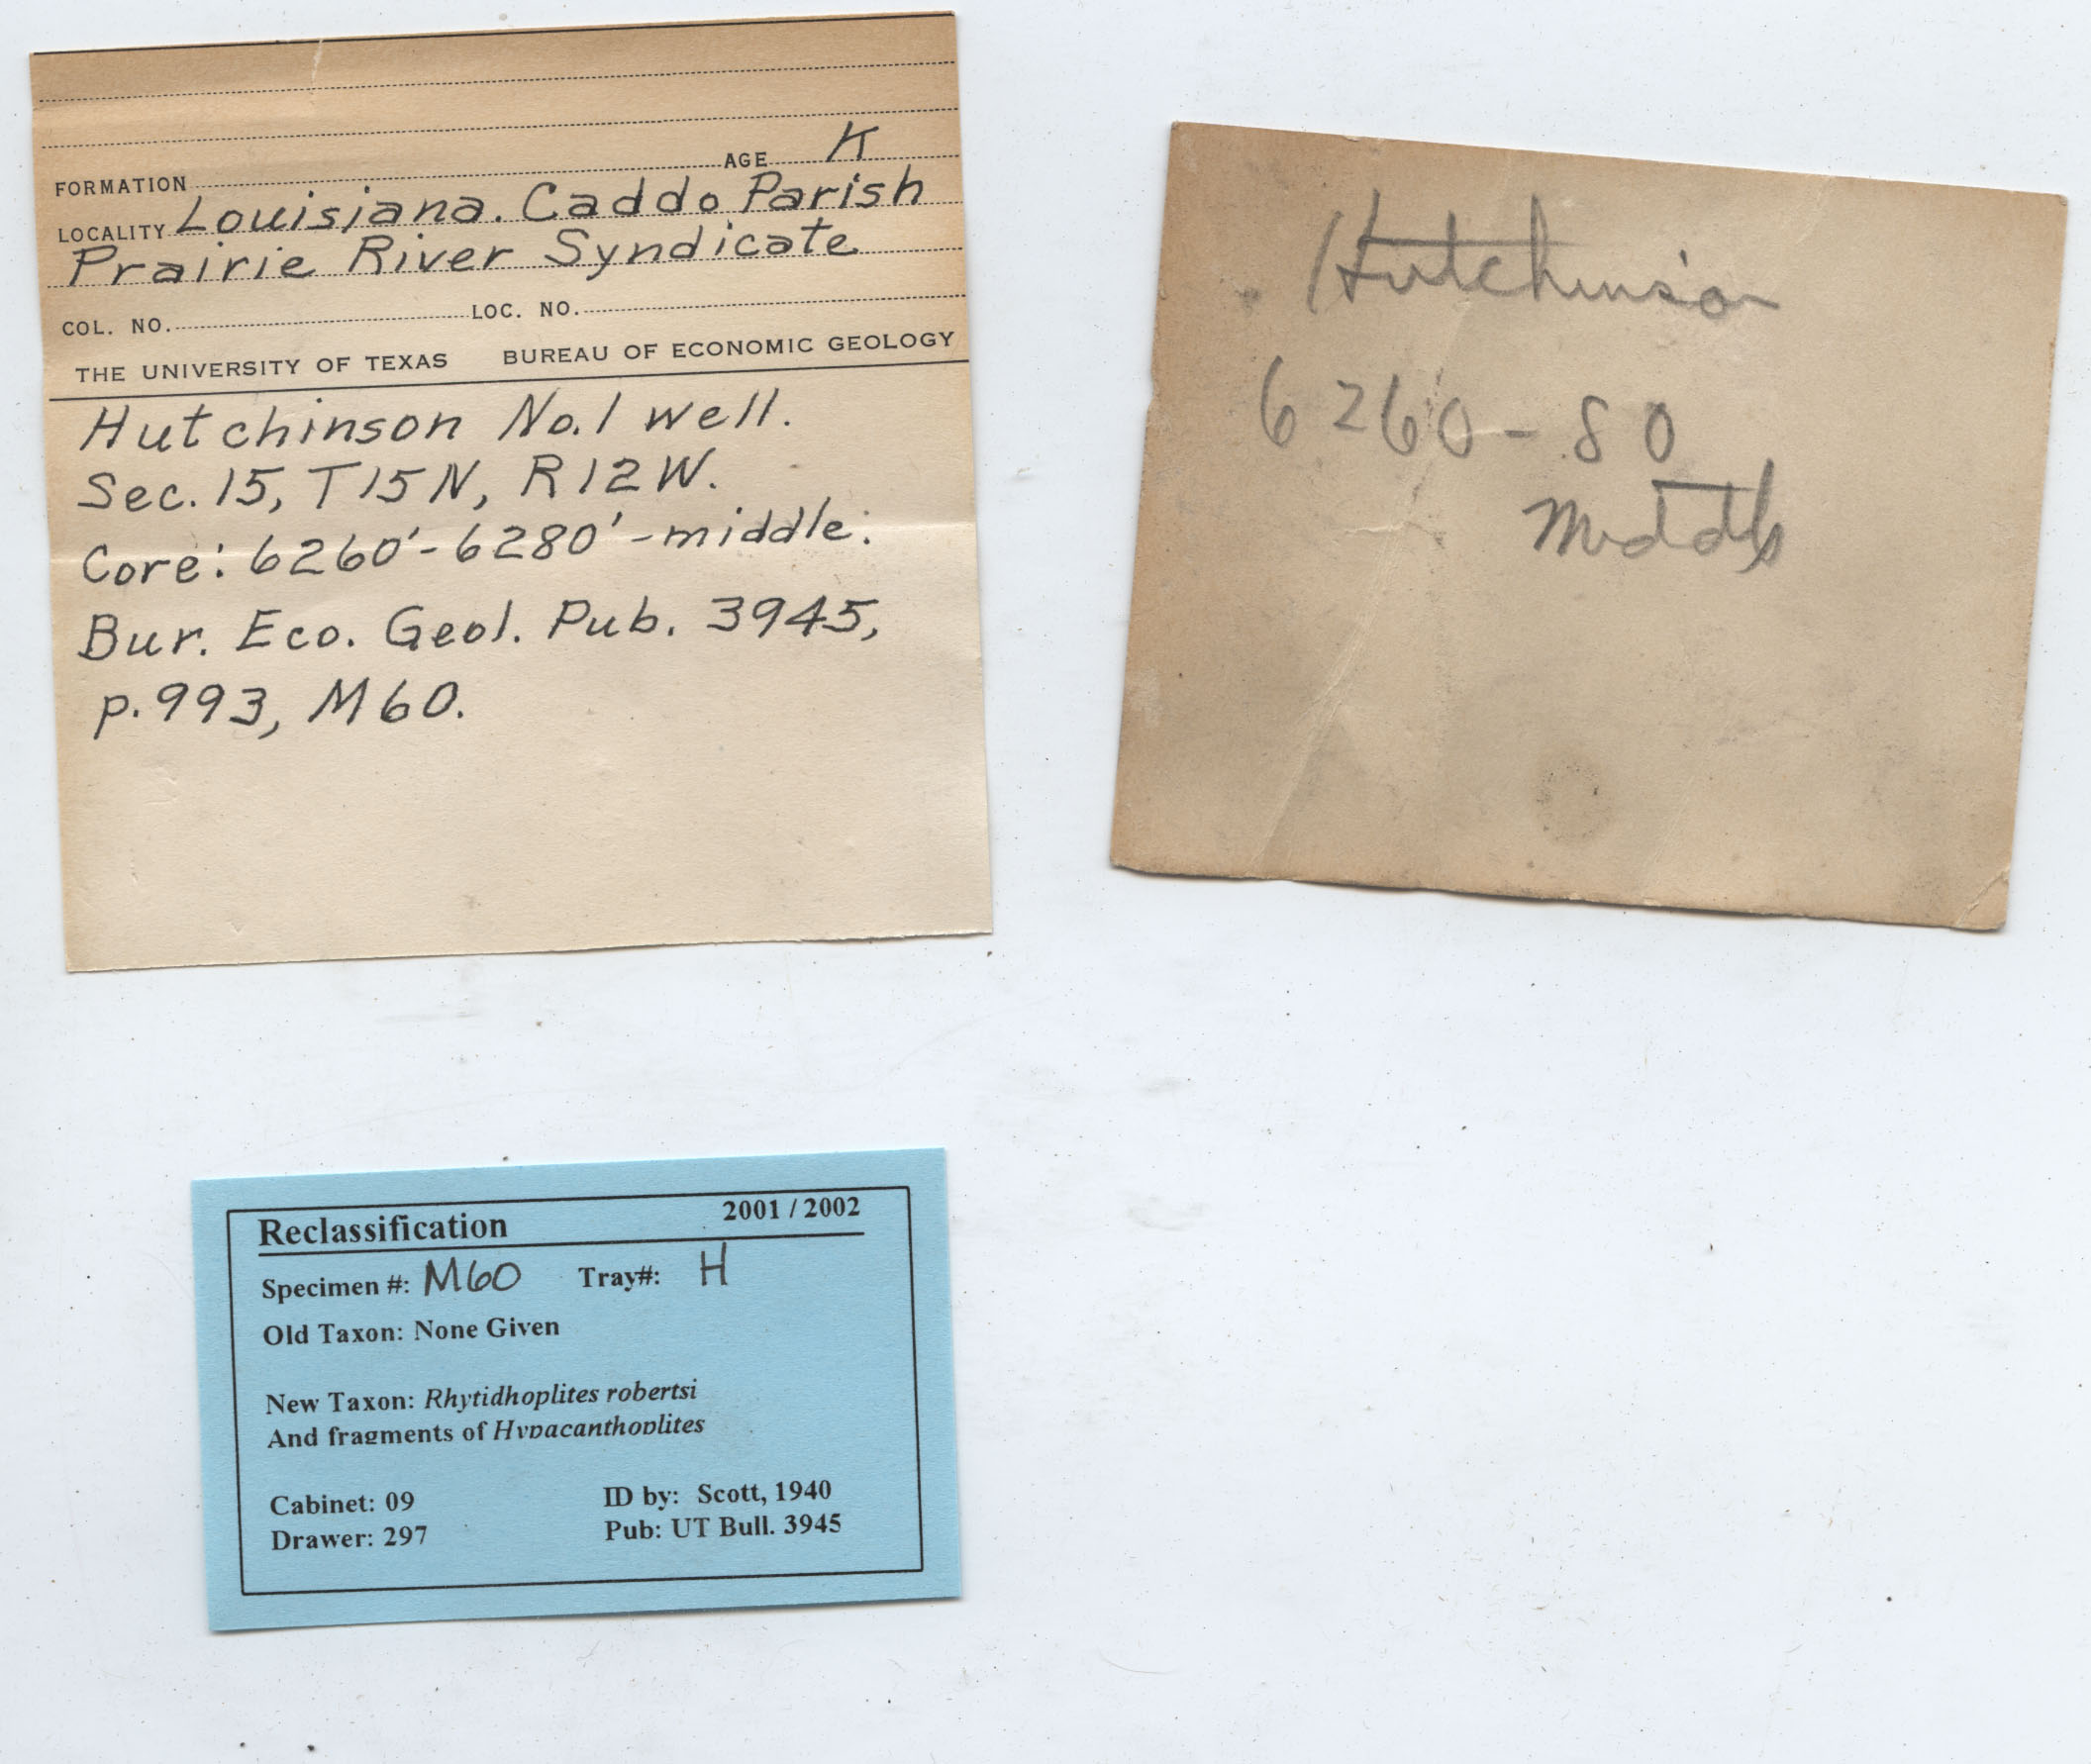 FORMATION AGE K
LOCALITY Louisiana. Caddo Parish
Prairie River Syndicate
COL. NO. LOC. NO.
THE UNIVERSITY OF TEXAS BUREAU OF ECONOMIC GEOLOGY
Hutchinson No.1 well.
Sec. 15, T15N, R12W.
Core: 6260'-6280'-middle.
Bur. Eco. Geol. Pub. 3945,
p. 993, M60.
Hutchinson
6260-80
Middle
Reclassification 2001 / 2002
Specimen #: M60 Tray#: H
Old Taxon: None Given
New Taxon: Rhytidhoplites robertsi
And fragments of Hypacanthoplites
Cabinet: 09 ID by: Scott, 1940
Drawer: 297 Pub: UT Bull. 3945